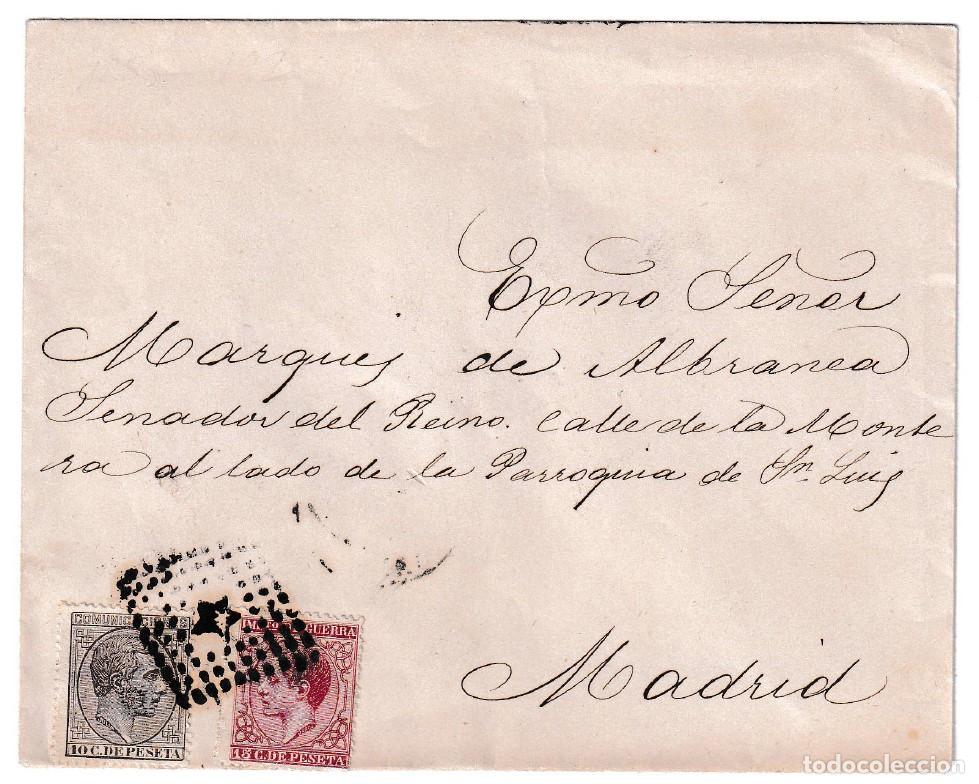 Exmo Señor
Marques de Albranca
Senador del Reino. Calle de la Monte
ra al lado de la Parroquia de Sn. Luis
Madrid
COMUNICACIONES
10 C. DE PESETA
IMPTO GUERRA
15 C. DE PESETA
todocoleccion